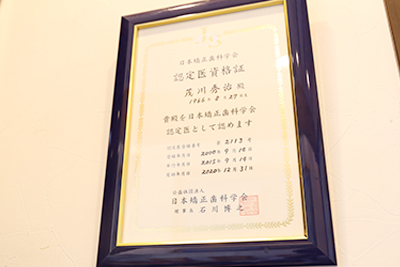 日本矯正歯科学会
認定医資格証
茂川秀治 殿
1966年8月27日生
貴殿を日本矯正歯科学会
認定医として認めます
第 2113 号
2000年9月14日
2015年9月14日
2020年12月31日
公益社団法人
日本矯正歯科学会
理事長 石川博之